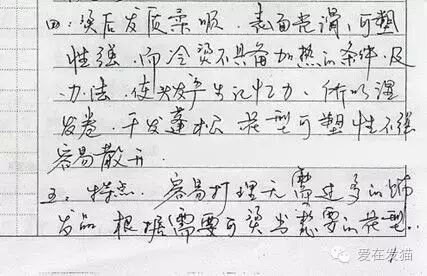 四：烫后发质柔顺．表面光滑，可塑
性强．而冷烫不具备加热的条件及
办法，使头发产生记忆力，所以湿
发卷．干发蓬松 花型可塑性不强
容易散开
五：特点．容易打理无需过多的饰
发品 根据需要可烫出想要的花型．
爱在发猫